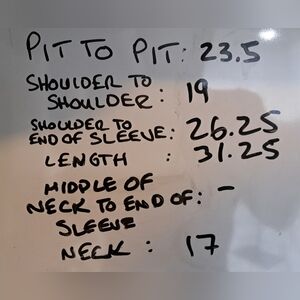 PIT TO PIT: 23.5
SHOULDER TO
SHOULDER : 19
SHOULDER TO
END OF SLEEVE: 26.25
LENGTH : 31.25
MIDDLE OF
NECK TO END OF: -
SLEEVE
NECK : 17